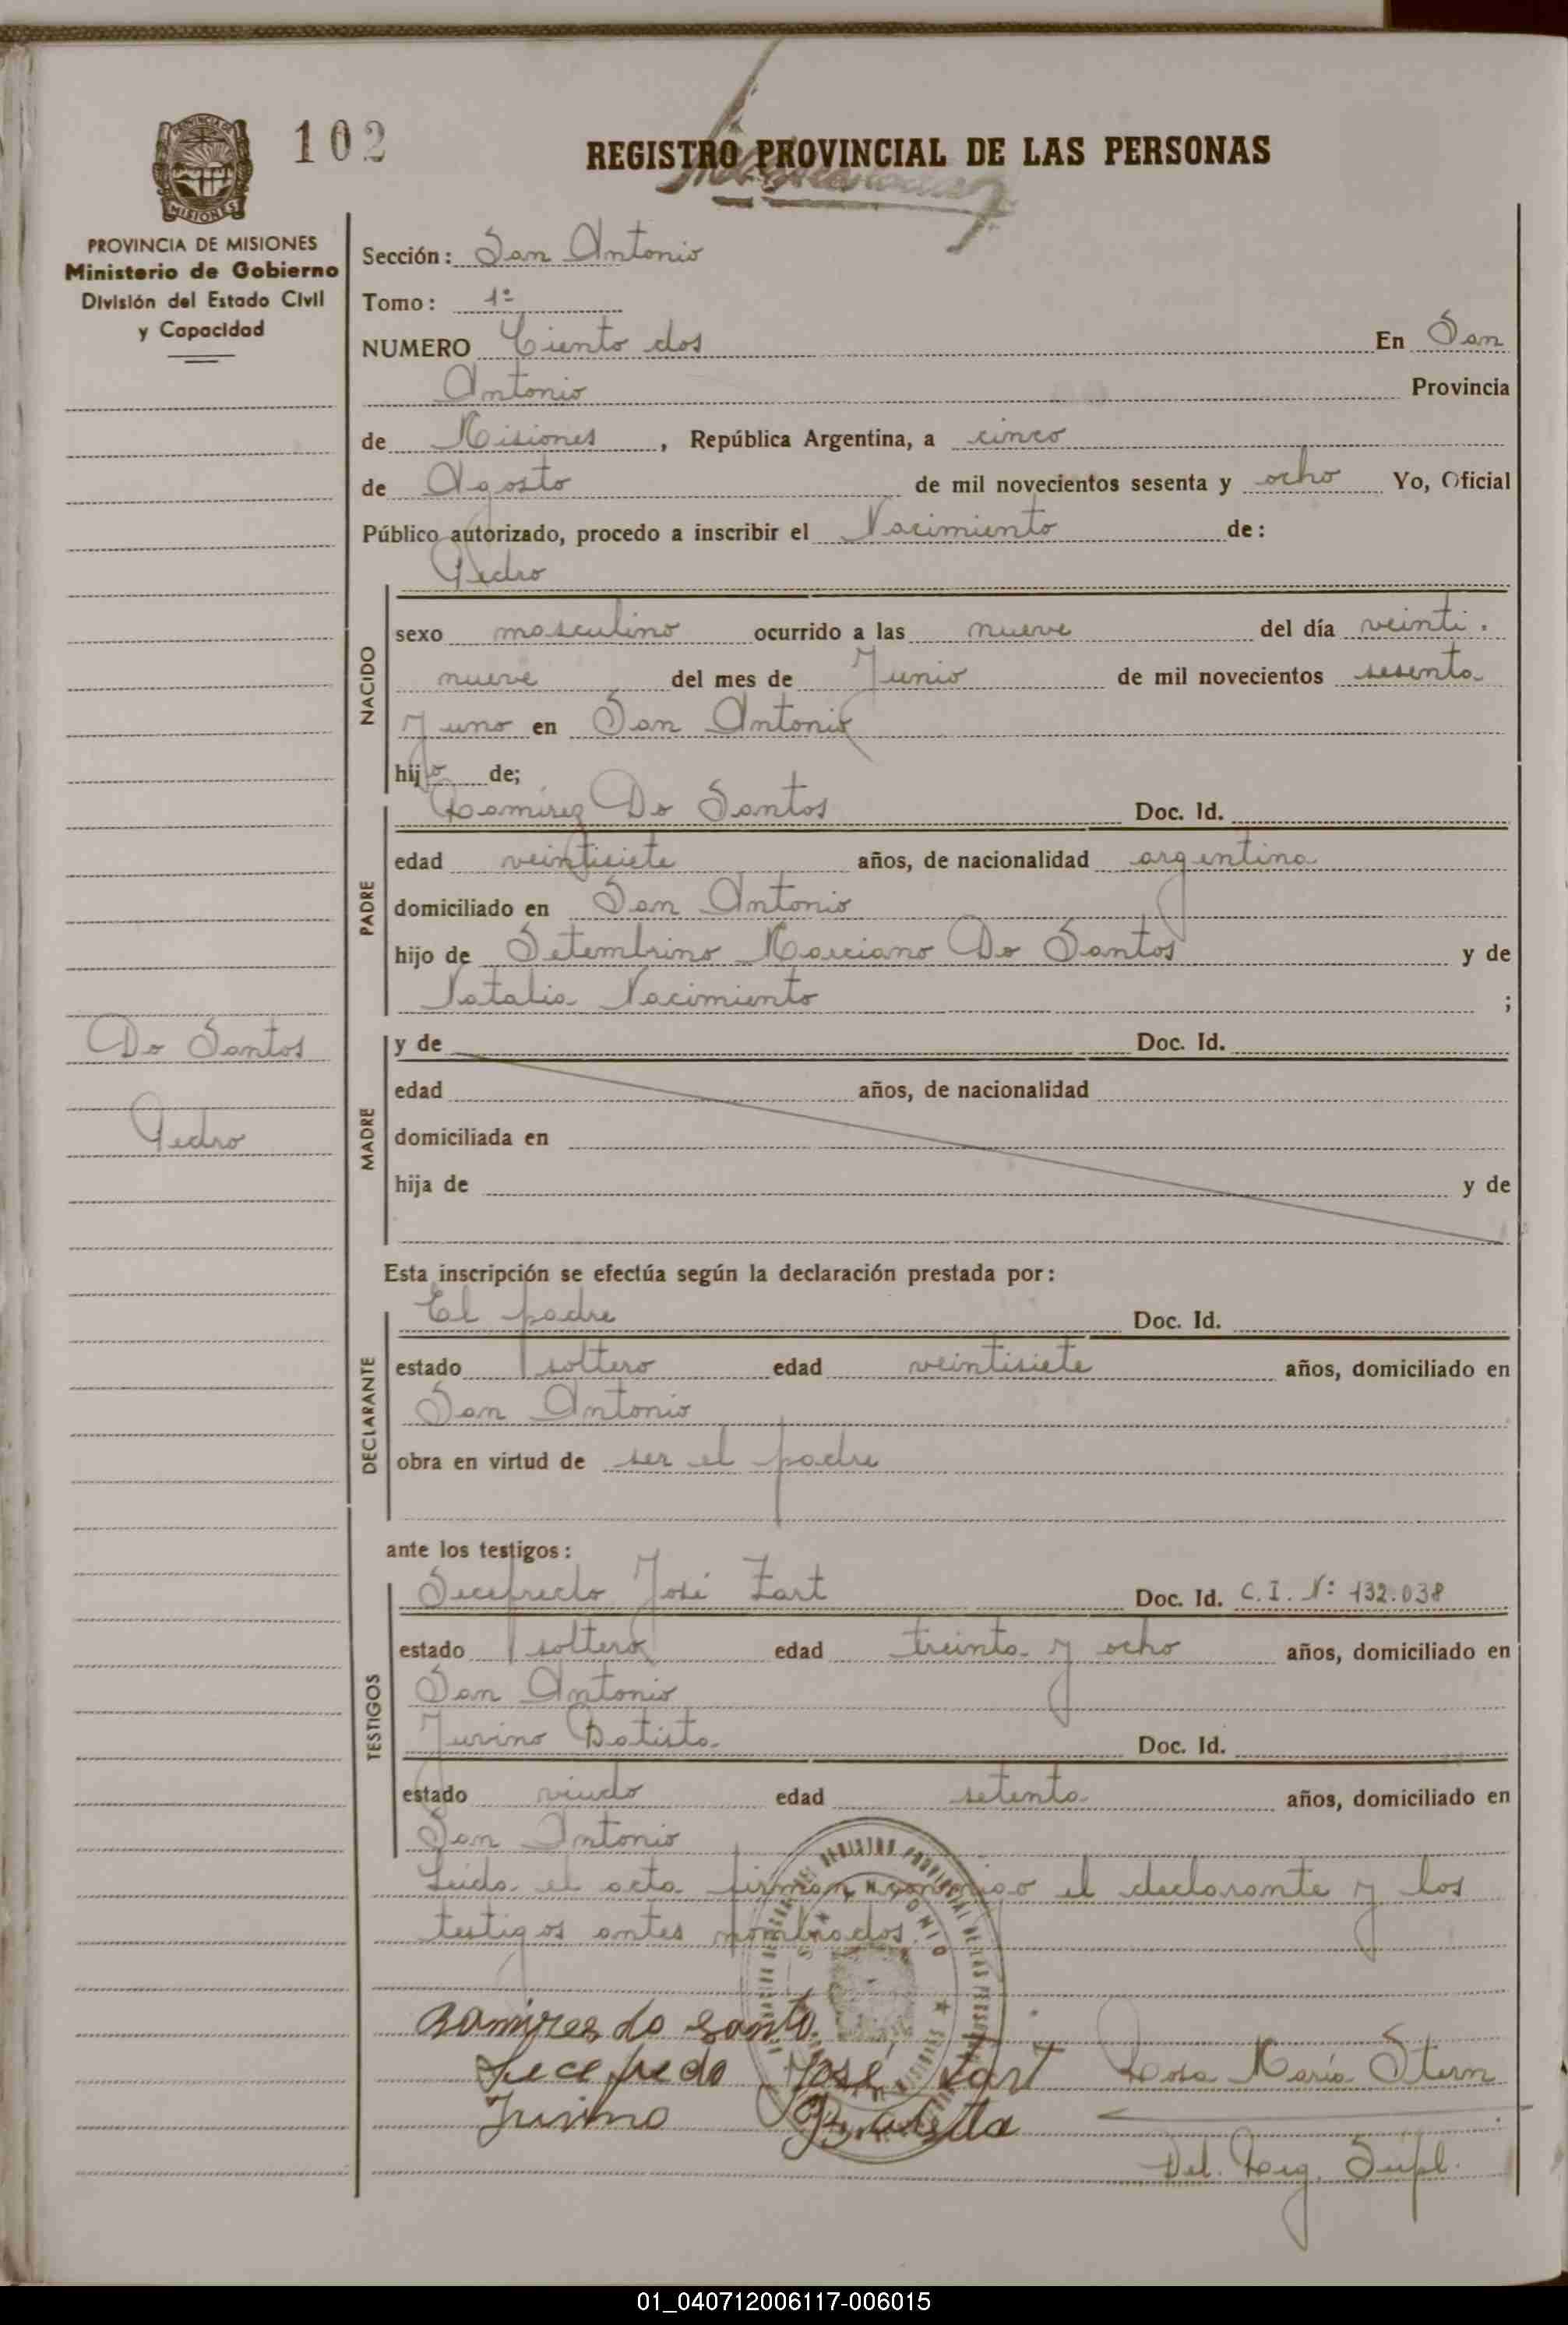 102
REGISTRO PROVINCIAL DE LAS PERSONAS
PROVINCIA DE MISIONES
Ministerio de Gobierno
División del Estado Civil
y Capacidad
Sección: San Antonio
Tomo: 1º
NUMERO Ciento dos En San
Antonio Provincia
de Misiones, República Argentina, a cinco
de Agosto de mil novecientos sesenta y ocho Yo, Oficial
Público autorizado, procedo a inscribir el Nacimiento de:
Pedro
NACIDO
sexo masculino ocurrido a las nueve del día veinti.
nueve del mes de Junio de mil novecientos sesenta
y uno en San Antonio
hijo de;
PADRE
Ramirez Do Santos Doc. Id.
edad veintisiete años, de nacionalidad argentina
domiciliado en San Antonio
hijo de Setembrino Marciano Do Santos y de
Natalia Nacimiento ;
Do Santos
Pedro
MADRE
y de Doc. Id.
edad años, de nacionalidad
domiciliada en
hija de y de
Esta inscripción se efectúa según la declaración prestada por:
DECLARANTE
El padre Doc. Id.
estado soltero edad veintisiete años, domiciliado en
San Antonio
obra en virtud de ser el padre
ante los testigos:
TESTIGOS
Secefredo José Zart Doc. Id. C.I. Nº 132.038
estado soltero edad treinta y ocho años, domiciliado en
San Antonio
Jurino Batista Doc. Id.
estado viudo edad setenta años, domiciliado en
San Antonio
Leida el acta firman conmigo el declarante y los
testigos antes nombrados.
Ramires do Santo
Secefredo José Zart Rosa María Stern
Jurino Batista
Del. Reg. Supl.
01_040712006117-006015